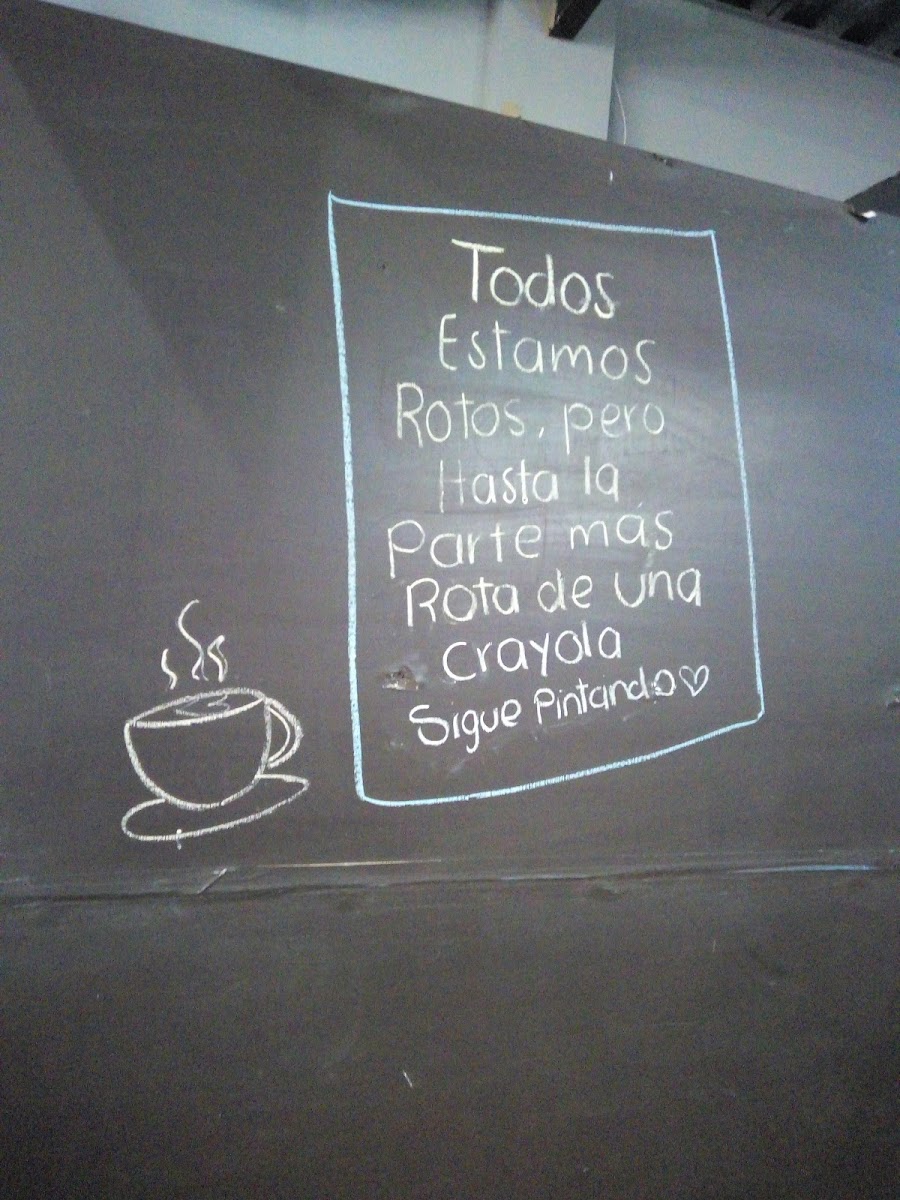 Todos
Estamos
Rotos, pero
Hasta la
Parte más
Rota de una
crayola
Sigue Pintando♡